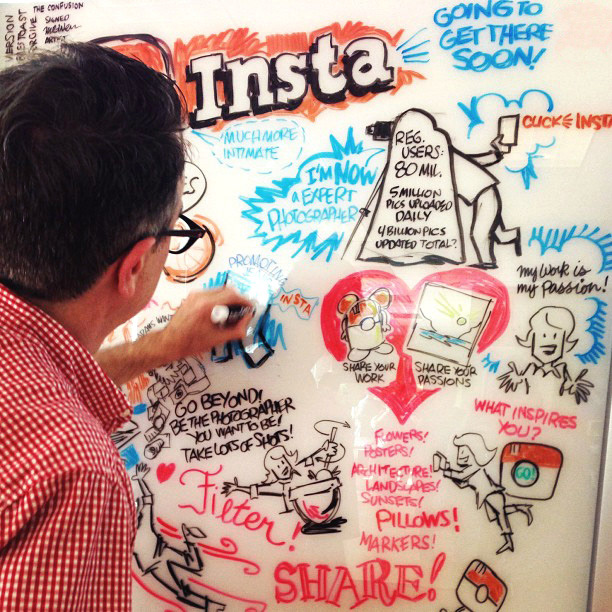 THE CONFUSION
SIGNED
ARTIST
VERSION
Insta
GOING TO
GET THERE
SOON!
MUCH MORE
INTIMATE
I'M NOW
A EXPERT
PHOTOGRAPHER
REG.
USERS:
80 MIL.
5 MILLION
PICS UPLOADED
DAILY
4 BILLION PICS
UPDATED TOTAL?
CLICK & INSTA
PROMOTING
INSTA
MY WORK IS
MY PASSION!
SHARE YOUR
WORK
SHARE YOUR
PASSIONS
GO BEYOND!
BE THE PHOTOGRAPHER
YOU WANT TO BE!
TAKE LOTS OF SHOTS!
WHAT INSPIRES
YOU?
GO!
FLOWERS!
POSTERS!
ARCHITECTURE!
LANDSCAPES!
SUNSETS!
PILLOWS!
MARKERS!
Filter!
SHARE!